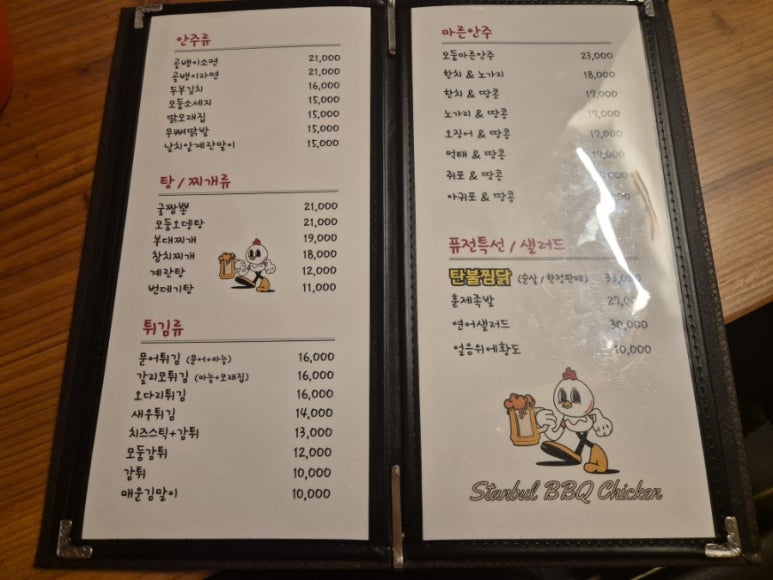 안주류
골뱅이소면 21,000
골뱅이라면 21,000
두부김치 16,000
모둠소세지 15,000
닭모래집 15,000
무뼈닭발 15,000
날치알계란말이 15,000
탕 / 찌개류
굴짬뽕 21,000
모둠오뎅탕 21,000
부대찌개 19,000
참치찌개 18,000
계란탕 12,000
번데기탕 11,000
튀김류
문어튀김 (문어+마늘) 16,000
갈리모튀김 (마늘+모래집) 16,000
오다리튀김 16,000
새우튀김 14,000
치즈스틱+감튀 13,000
모둠감튀 12,000
감튀 10,000
매운김말이 10,000
마른안주
모둠마른안주 23,000
한치 & 노가리 18,000
한치 & 땅콩 17,000
노가리 & 땅콩 17,000
오징어 & 땅콩 17,000
먹태 & 땅콩 17,000
쥐포 & 땅콩
아귀포 & 땅콩
퓨전특선 / 샐러드
탄불찜닭 (순살/한정판매) 33,000
훈제족발
연어샐러드 30,000
얼음위에황도 10,000
Stanbul BBQ Chicken